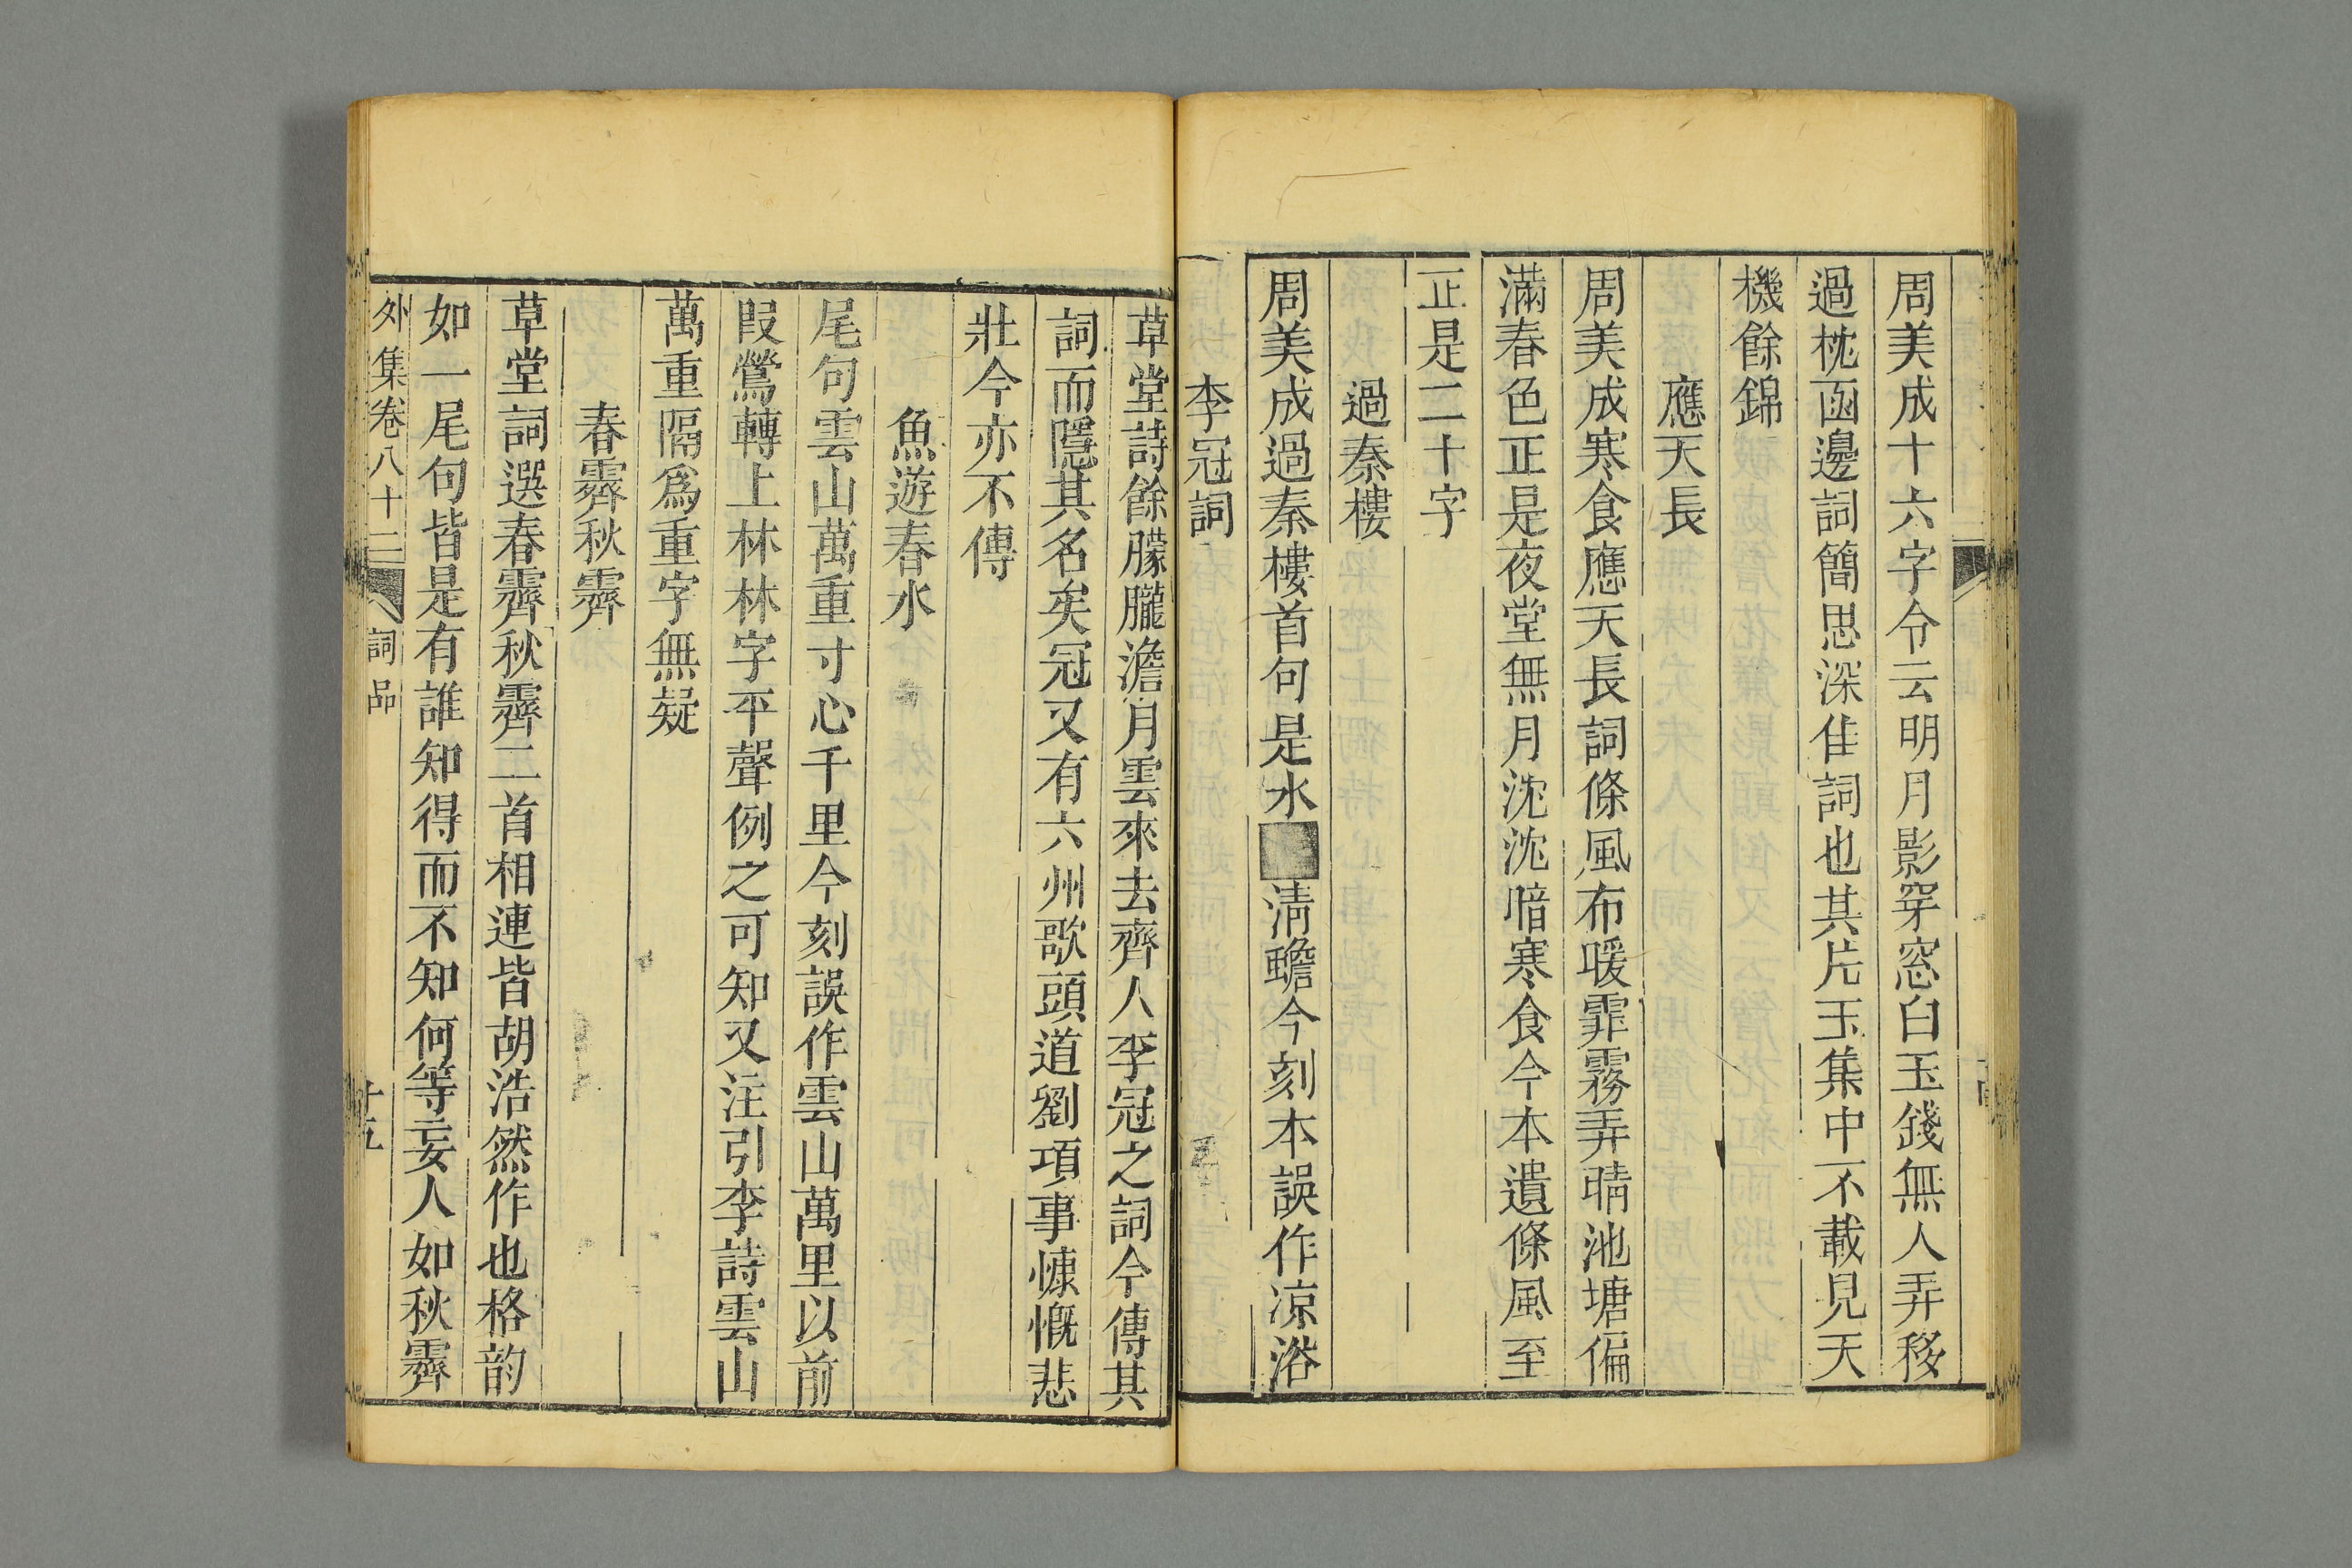 周美成十六字令云明月影穿窓白玉錢無人弄移
過枕函邊詞簡思深佳詞也其片玉集中不載見天
機餘錦
應天長
周美成寒食應天長詞條風布暖霏霧弄晴池塘偏
滿春色正是夜堂無月沈沈暗寒食今本遺條風至
正是二十字
過秦樓
周美成過秦樓首句是水清蟾今刻本誤作凉浴
李冠詞
草堂詩餘朦朧澹月雲來去齊人李冠之詞今傳其
詞而隱其名矣冠又有六州歌頭道劉項事慷慨悲
壯今亦不傳
魚遊春水
尾句雲山萬重寸心千里今刻誤作雲山萬里以前
段鶯轉上林林字平聲例之可知又注引李詩雲山
萬重隔爲重字無疑
春霽秋霽
草堂詞選春霽秋霽二首相連皆胡浩然作也格韵
如一尾句皆是有誰知得而不知何等妄人如秋霽
外集卷八十二 詞品 十五